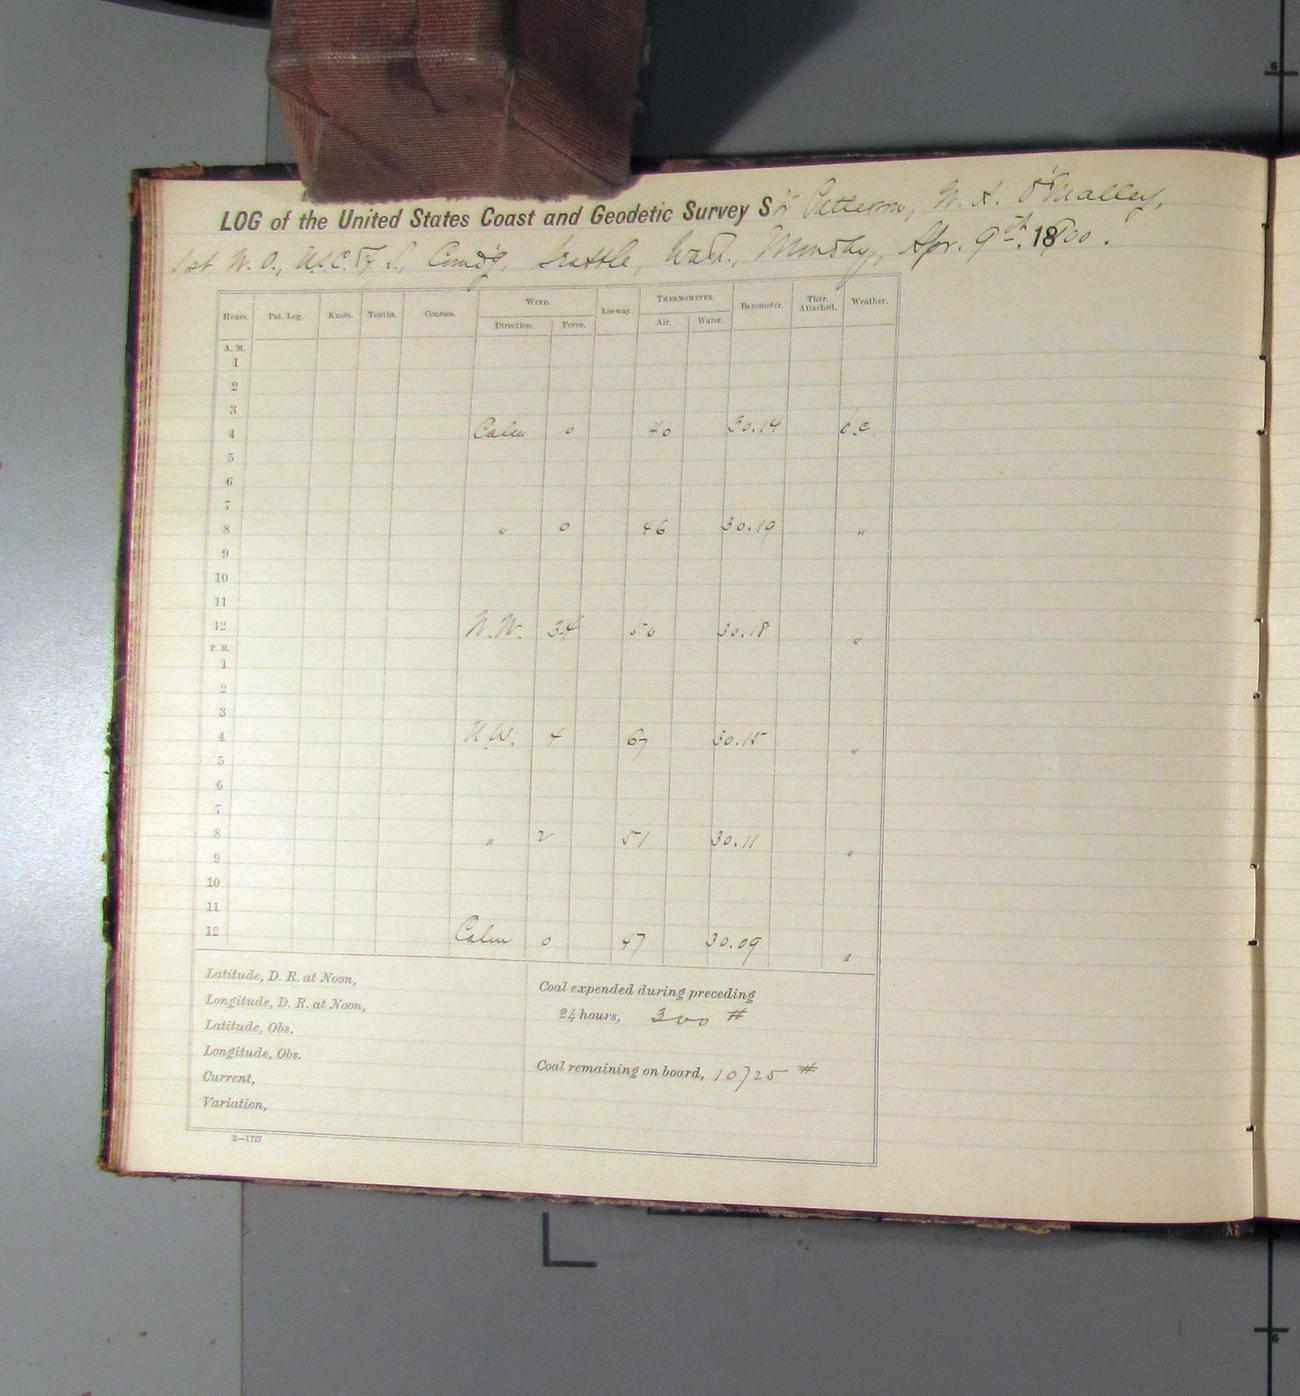 LOG of the United States Coast and Geodetic Survey Str Patterson, W. A. O'Malley,
1st W. O., U.S.C. & G. S., Comd'g, Seattle, Wash., Monday, Apr. 9th, 1900.
Hours. Pat. Log. Knots. Tenths. Courses. WIND. Leeway. THERMOMETER. Barometer. Ther. Attached. Weather.
Direction. Force. Air. Water.
A. M.
1
2
3
4 Calm 0 40 30.14 o.c.
5
6
7
8 " 0 46 30.19 "
9
10
11
12 N.W. 34 50 30.18 "
P. M.
1
2
3
4 N.W. 4 67 30.15 "
5
6
7
8 " 2 51 30.11 "
9
10
11
12 Calm 0 47 30.09 "
Latitude, D. R. at Noon,
Longitude, D. R. at Noon,
Latitude, Obs.
Longitude, Obs.
Current,
Variation,
Coal expended during preceding
24 hours, 300 #
Coal remaining on board, 10725 #
2—1727